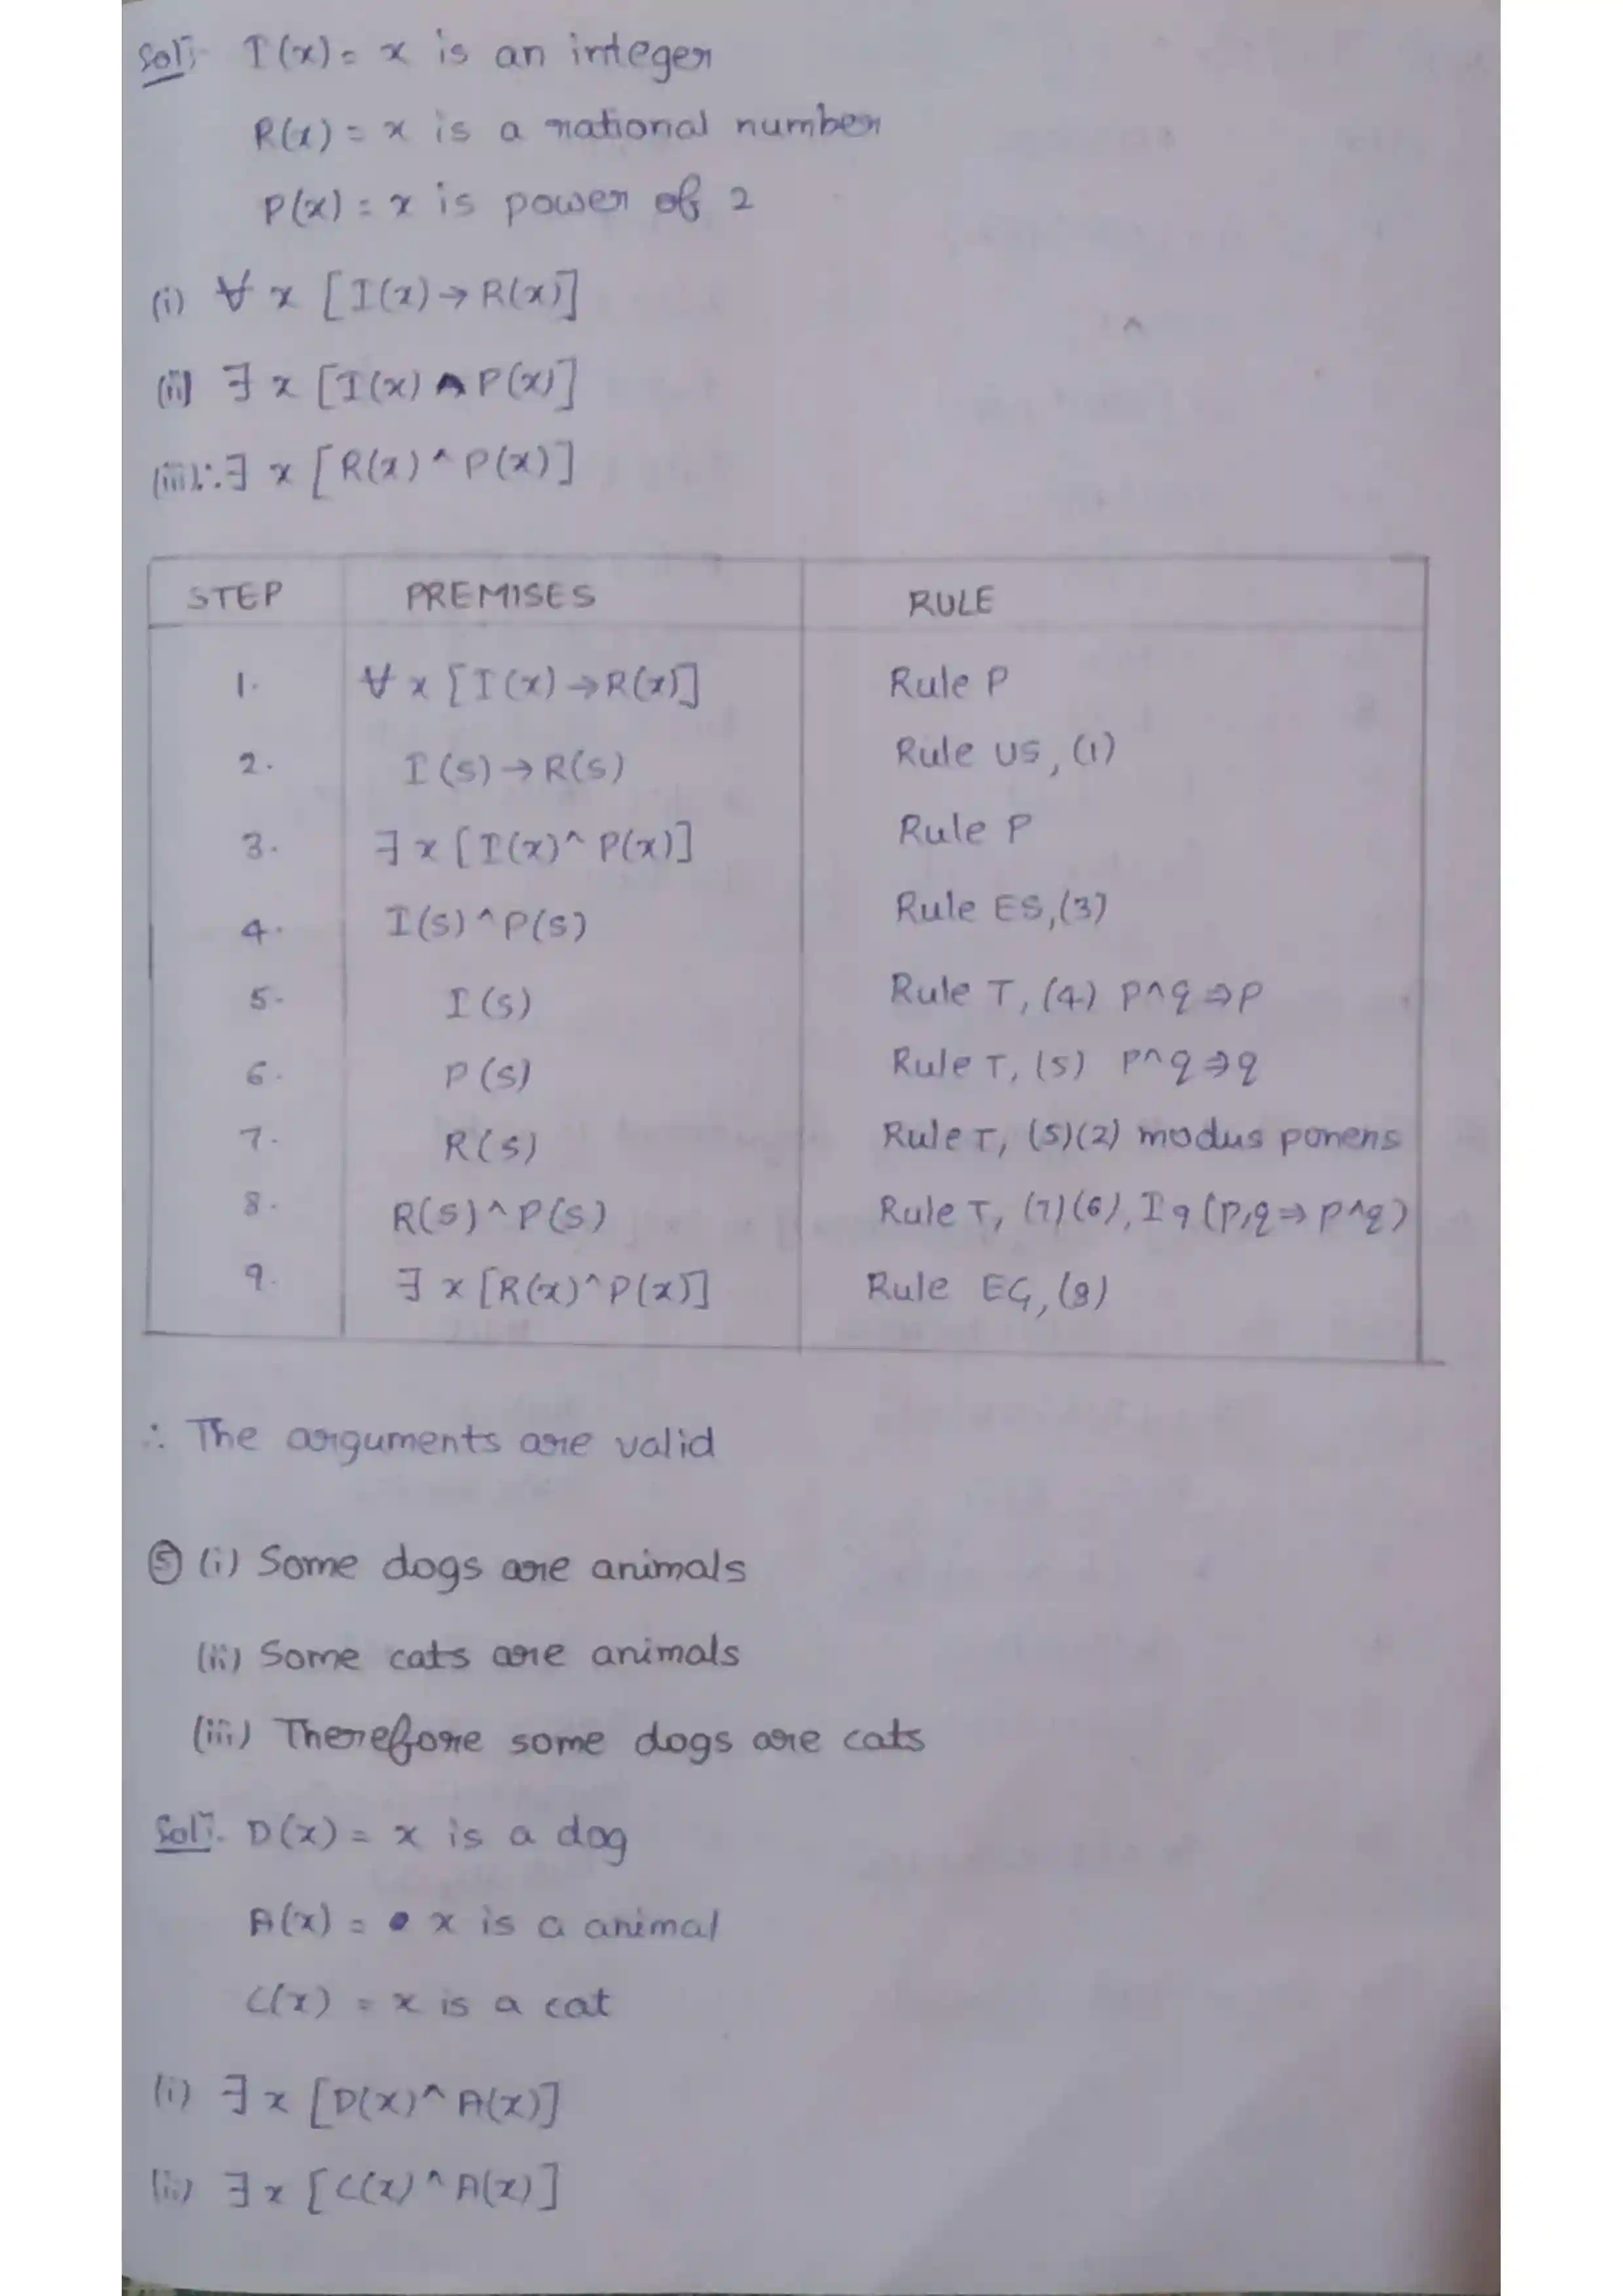 Sol:- I(x) = x is an integer
R(x) = x is a rational number
P(x) = x is power of 2
(i) ∀ x [I(x) → R(x)]
(ii) ∃ x [I(x) ^ P(x)]
(iii) ∴ ∃ x [R(x) ^ P(x)]
STEP PREMISES RULE
1. ∀ x [I(x) → R(x)] Rule P
2. I(s) → R(s) Rule US, (1)
3. ∃ x [I(x) ^ P(x)] Rule P
4. I(s) ^ P(s) Rule ES,(3)
5. I(s) Rule T, (4) p^q ⇒ p
6. P(s) Rule T, (5) p^q ⇒ q
7. R(s) Rule T, (5)(2) modus ponens
8. R(s) ^ P(s) Rule T, (7)(6), I9 (p,q ⇒ p^q)
9. ∃ x [R(x) ^ P(x)] Rule EG, (8)
∴ The arguments are valid
⑤ (i) Some dogs are animals
(ii) Some cats are animals
(iii) Therefore some dogs are cats
Sol:- D(x) = x is a dog
A(x) = x is a animal
C(x) = x is a cat
(i) ∃ x [D(x) ^ A(x)]
(ii) ∃ x [C(x) ^ A(x)]